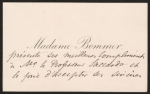 Madame Bommer
présente ses meilleurs compliments
à Mr le Professeur Saccardo et
le prie d'accepter ses sincères